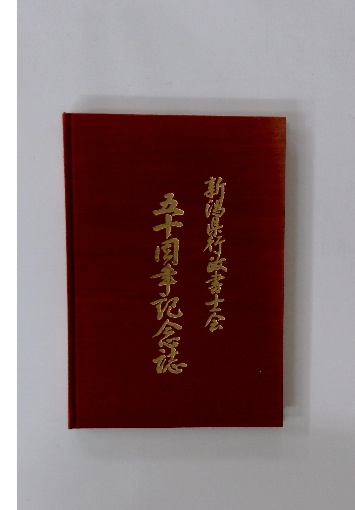 新潟県行政書士会
五十周年記念誌